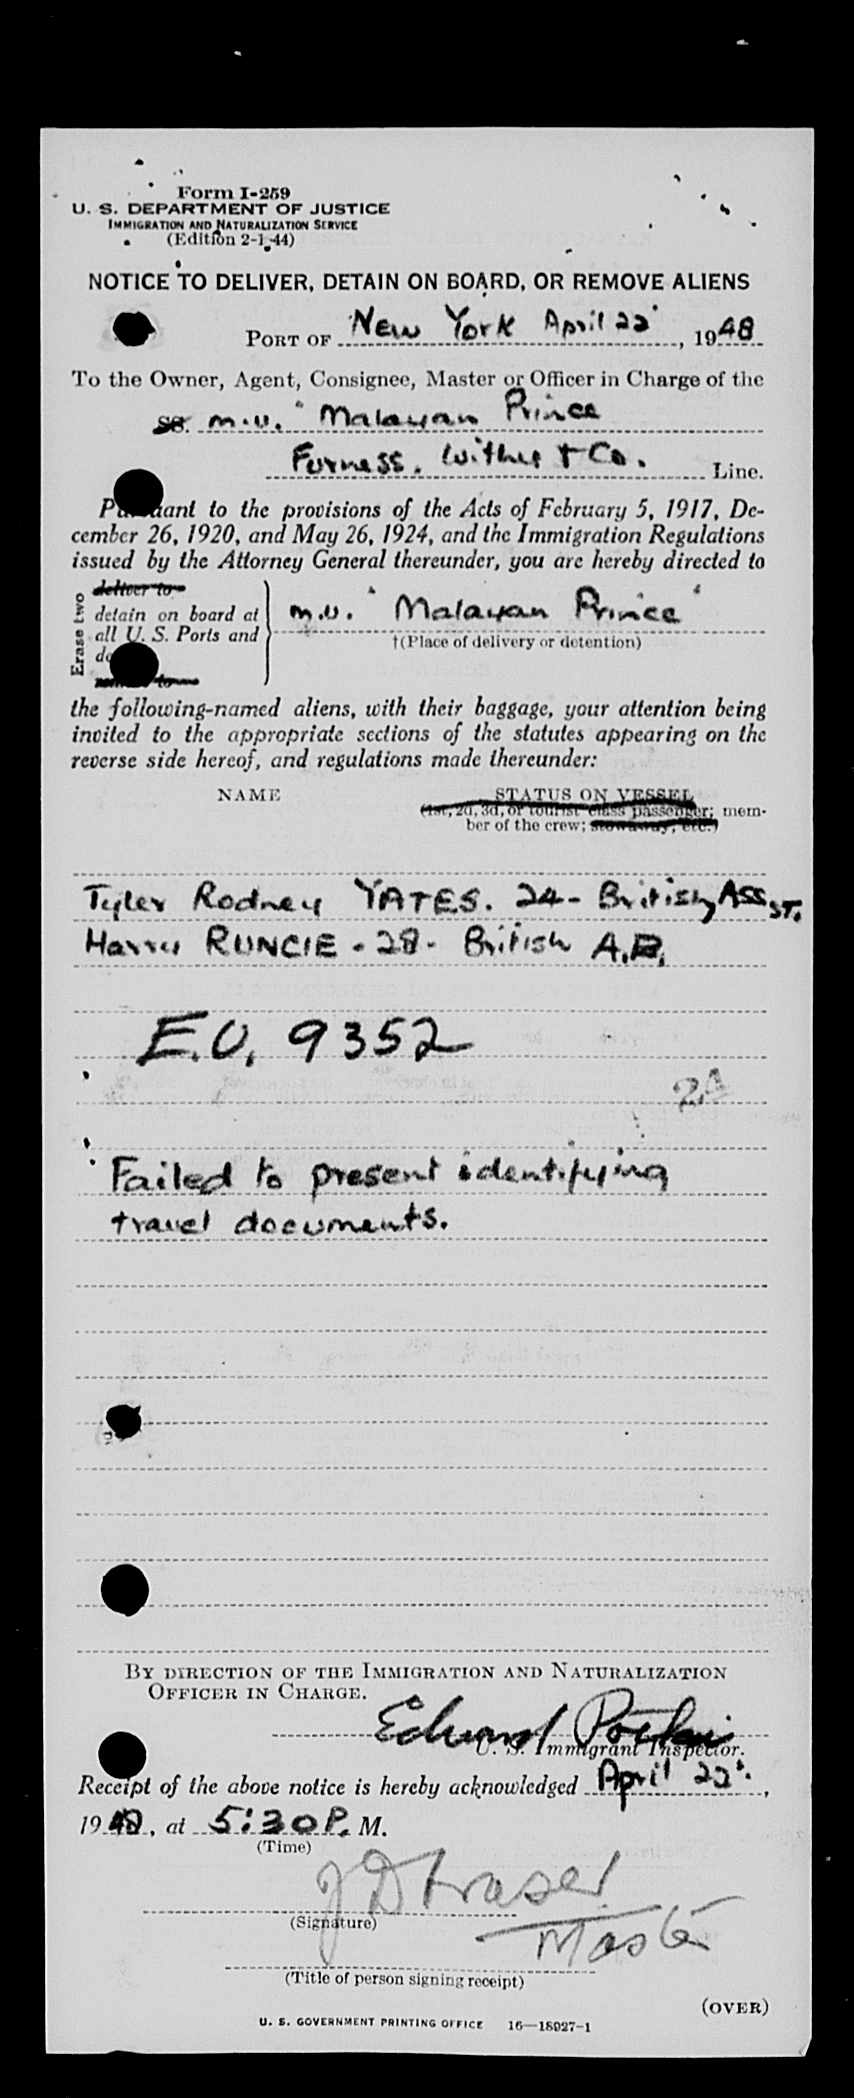 Form I-259
U. S. DEPARTMENT OF JUSTICE
IMMIGRATION AND NATURALIZATION SERVICE
(Edition 2-1-44)
NOTICE TO DELIVER, DETAIN ON BOARD, OR REMOVE ALIENS
PORT OF New York April 22, 1948
To the Owner, Agent, Consignee, Master or Officer in Charge of the
SS. m.v. "Malayan Prince
Furness, Withy + Co. Line.
Pursuant to the provisions of the Acts of February 5, 1917, De-
cember 26, 1920, and May 26, 1924, and the Immigration Regulations
issued by the Attorney General thereunder, you are hereby directed to
Erase two
deliver to
detain on board at
all U. S. Ports and
m.v. "Malayan Prince"
†(Place of delivery or detention)
remove to
the following-named aliens, with their baggage, your attention being
invited to the appropriate sections of the statutes appearing on the
reverse side hereof, and regulations made thereunder:
NAME STATUS ON VESSEL
(1st, 2d, 3d, or tourist class passenger; mem-
ber of the crew; stowaway, etc.)
Tyler Rodney YATES. 24- British, ASST.
Harry RUNCIE - 28- British A.B.
E.O. 9352
24
Failed to present identifying
travel documents.
BY DIRECTION OF THE IMMIGRATION AND NATURALIZATION
OFFICER IN CHARGE.
Edward
U. S. Immigrant Inspector.
Receipt of the above notice is hereby acknowledged April 22,
1948, at 5:30 P. M.
(Time)
J D Fraser
(Signature)
Master
(Title of person signing receipt)
(OVER)
U. S. GOVERNMENT PRINTING OFFICE 16—18027-1